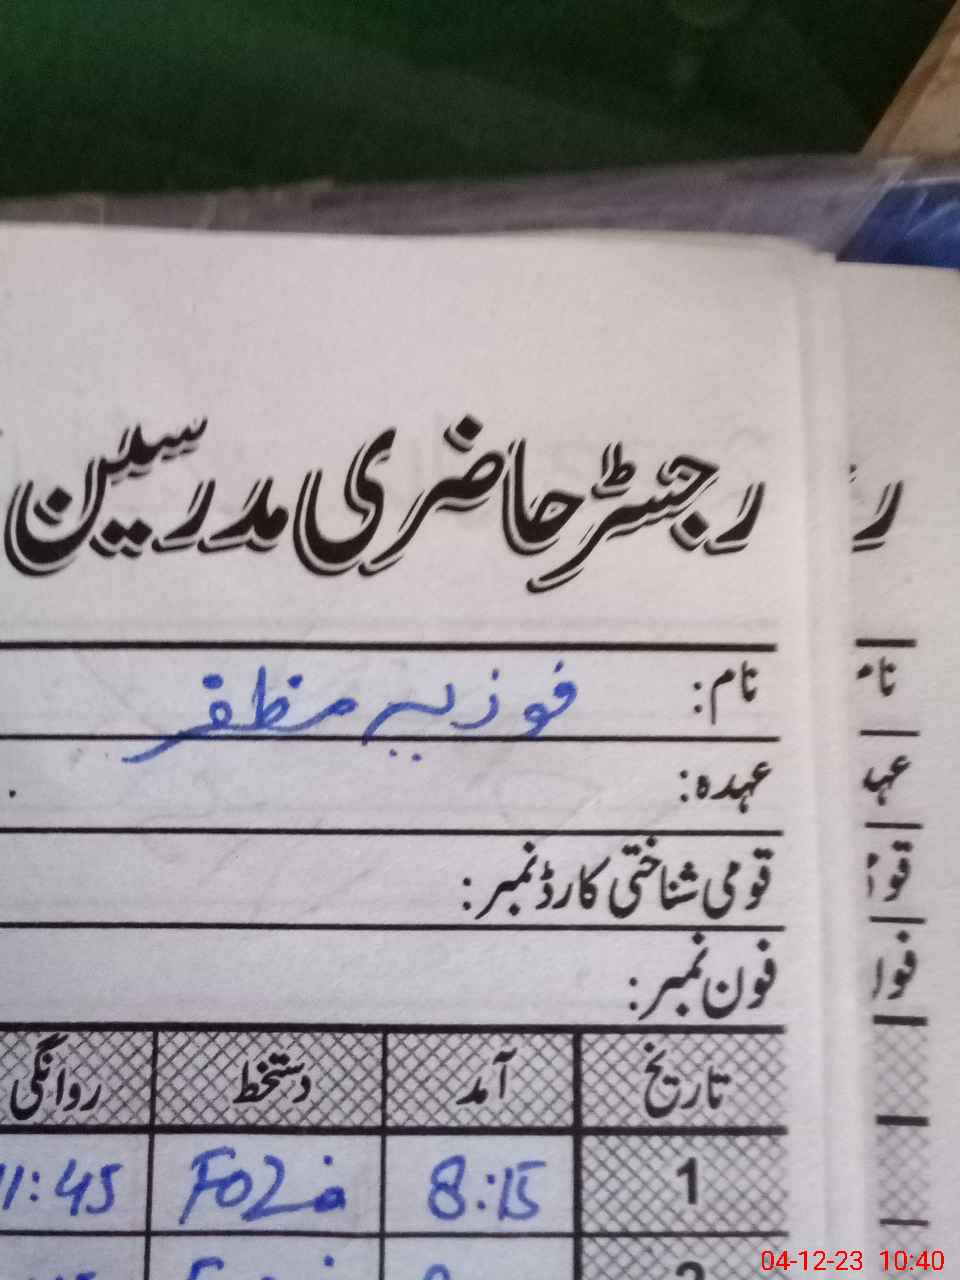 رجسٹر حاضری مدرسین
نام: فوزیہ مظفر
عہدہ:
قومی شناختی کارڈ نمبر:
فون نمبر:
تاریخ آمد دستخط روانگی
1 8:15 11:45
04-12-23 10:40